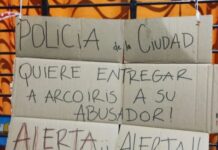 POLICIA de la CIUDAD
QUIERE ENTREGAR
A ARCOIRIS A SU
ABUSADOR!
ALERTA!! ALERTA!!